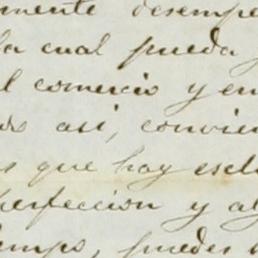 mente desempe
la cual pueda
l comercio y en
os así, convien
s que hay escl
perfeccion y al
iempo, puedes